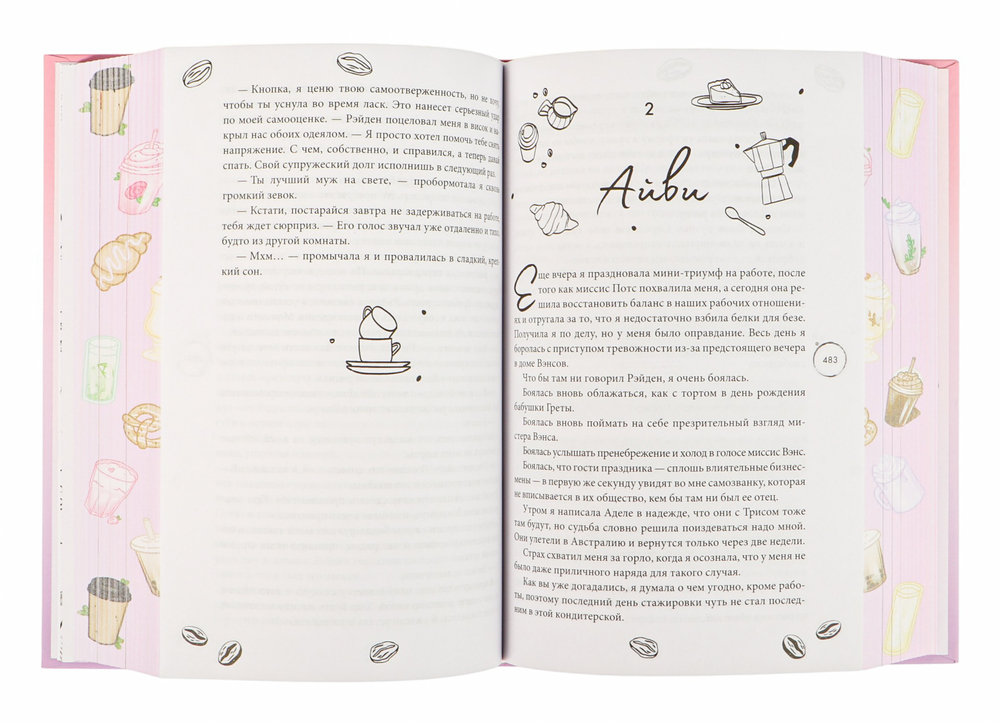 — Кнопка, я ценю твою самоотверженность, но не хочу
чтобы ты уснула во время ласк. Это нанесет серьезный удар
по моей самооценке. — Рэйден поцеловал меня в висок и на-
крыл нас обоих одеялом. — Я просто хотел помочь тебе снять
напряжение. С чем, собственно, и справился, а теперь давай
спать. Свой супружеский долг исполнишь в следующий раз.
— Ты лучший муж на свете, — пробормотала я сквозь
громкий зевок.
— Кстати, постарайся завтра не задерживаться на работе
тебя ждет сюрприз. — Его голос звучал уже отдаленно и тихо,
будто из другой комнаты.
— Мхм... — промычала я и провалилась в сладкий, креп-
кий сон.
2
Айви
Еще вчера я праздновала мини-триумф на работе, после
того как миссис Потс похвалила меня, а сегодня она ре-
шила восстановить баланс в наших рабочих отношени-
ях и отругала за то, что я недостаточно взбила белки для безе.
Получила я по делу, но у меня было оправдание. Весь день я
боролась с приступом тревожности из-за предстоящего вечера
в доме Вэнсов.
Что бы там ни говорил Рэйден, я очень боялась.
Боялась вновь облажаться, как с тортом в день рождения
бабушки Греты.
Боялась вновь поймать на себе презрительный взгляд ми-
стера Вэнса.
Боялась услышать пренебрежение и холод в голосе миссис Вэнс.
Боялась, что гости праздника — сплошь влиятельные бизнес-
мены — в первую же секунду увидят во мне самозванку, которая
не вписывается в их общество, кем бы там ни был ее отец.
Утром я написала Аделе в надежде, что они с Трисом тоже
там будут, но судьба словно решила поиздеваться надо мной.
Они улетели в Австралию и вернутся только через две недели.
Страх схватил меня за горло, когда я осознала, что у меня не
было даже приличного наряда для такого случая.
Как вы уже догадались, я думала о чем угодно, кроме рабо-
ты, поэтому последний день стажировки чуть не стал послед-
ним в этой кондитерской.
483